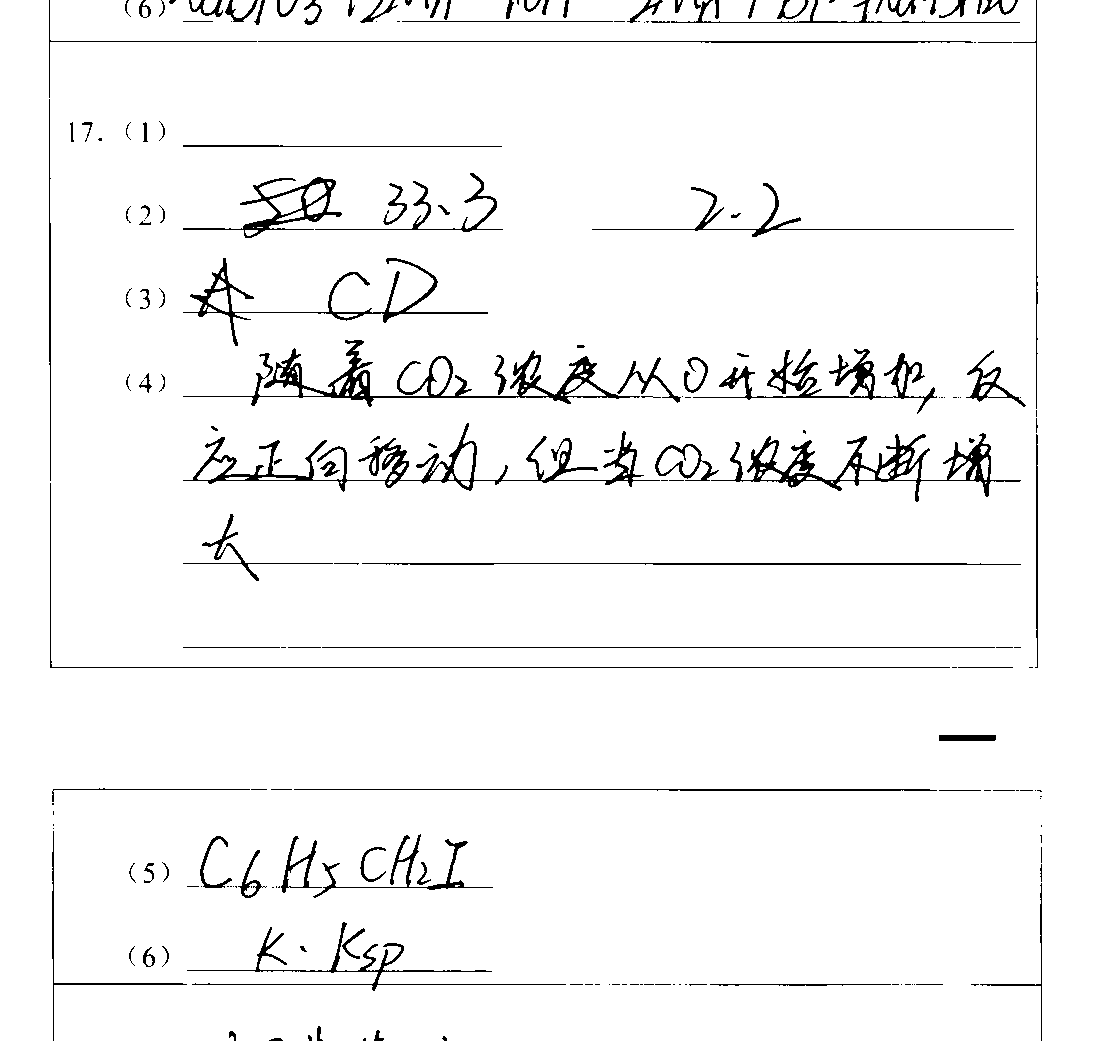 (6)
17.(1)
(2) 33.3 2.2
(3) CD
(4) 随着CO₂浓度从0开始增加,反
应正向移动,但当CO₂浓度不断增
大
(5) C₆H₅CH₂I
(6) K·Ksp